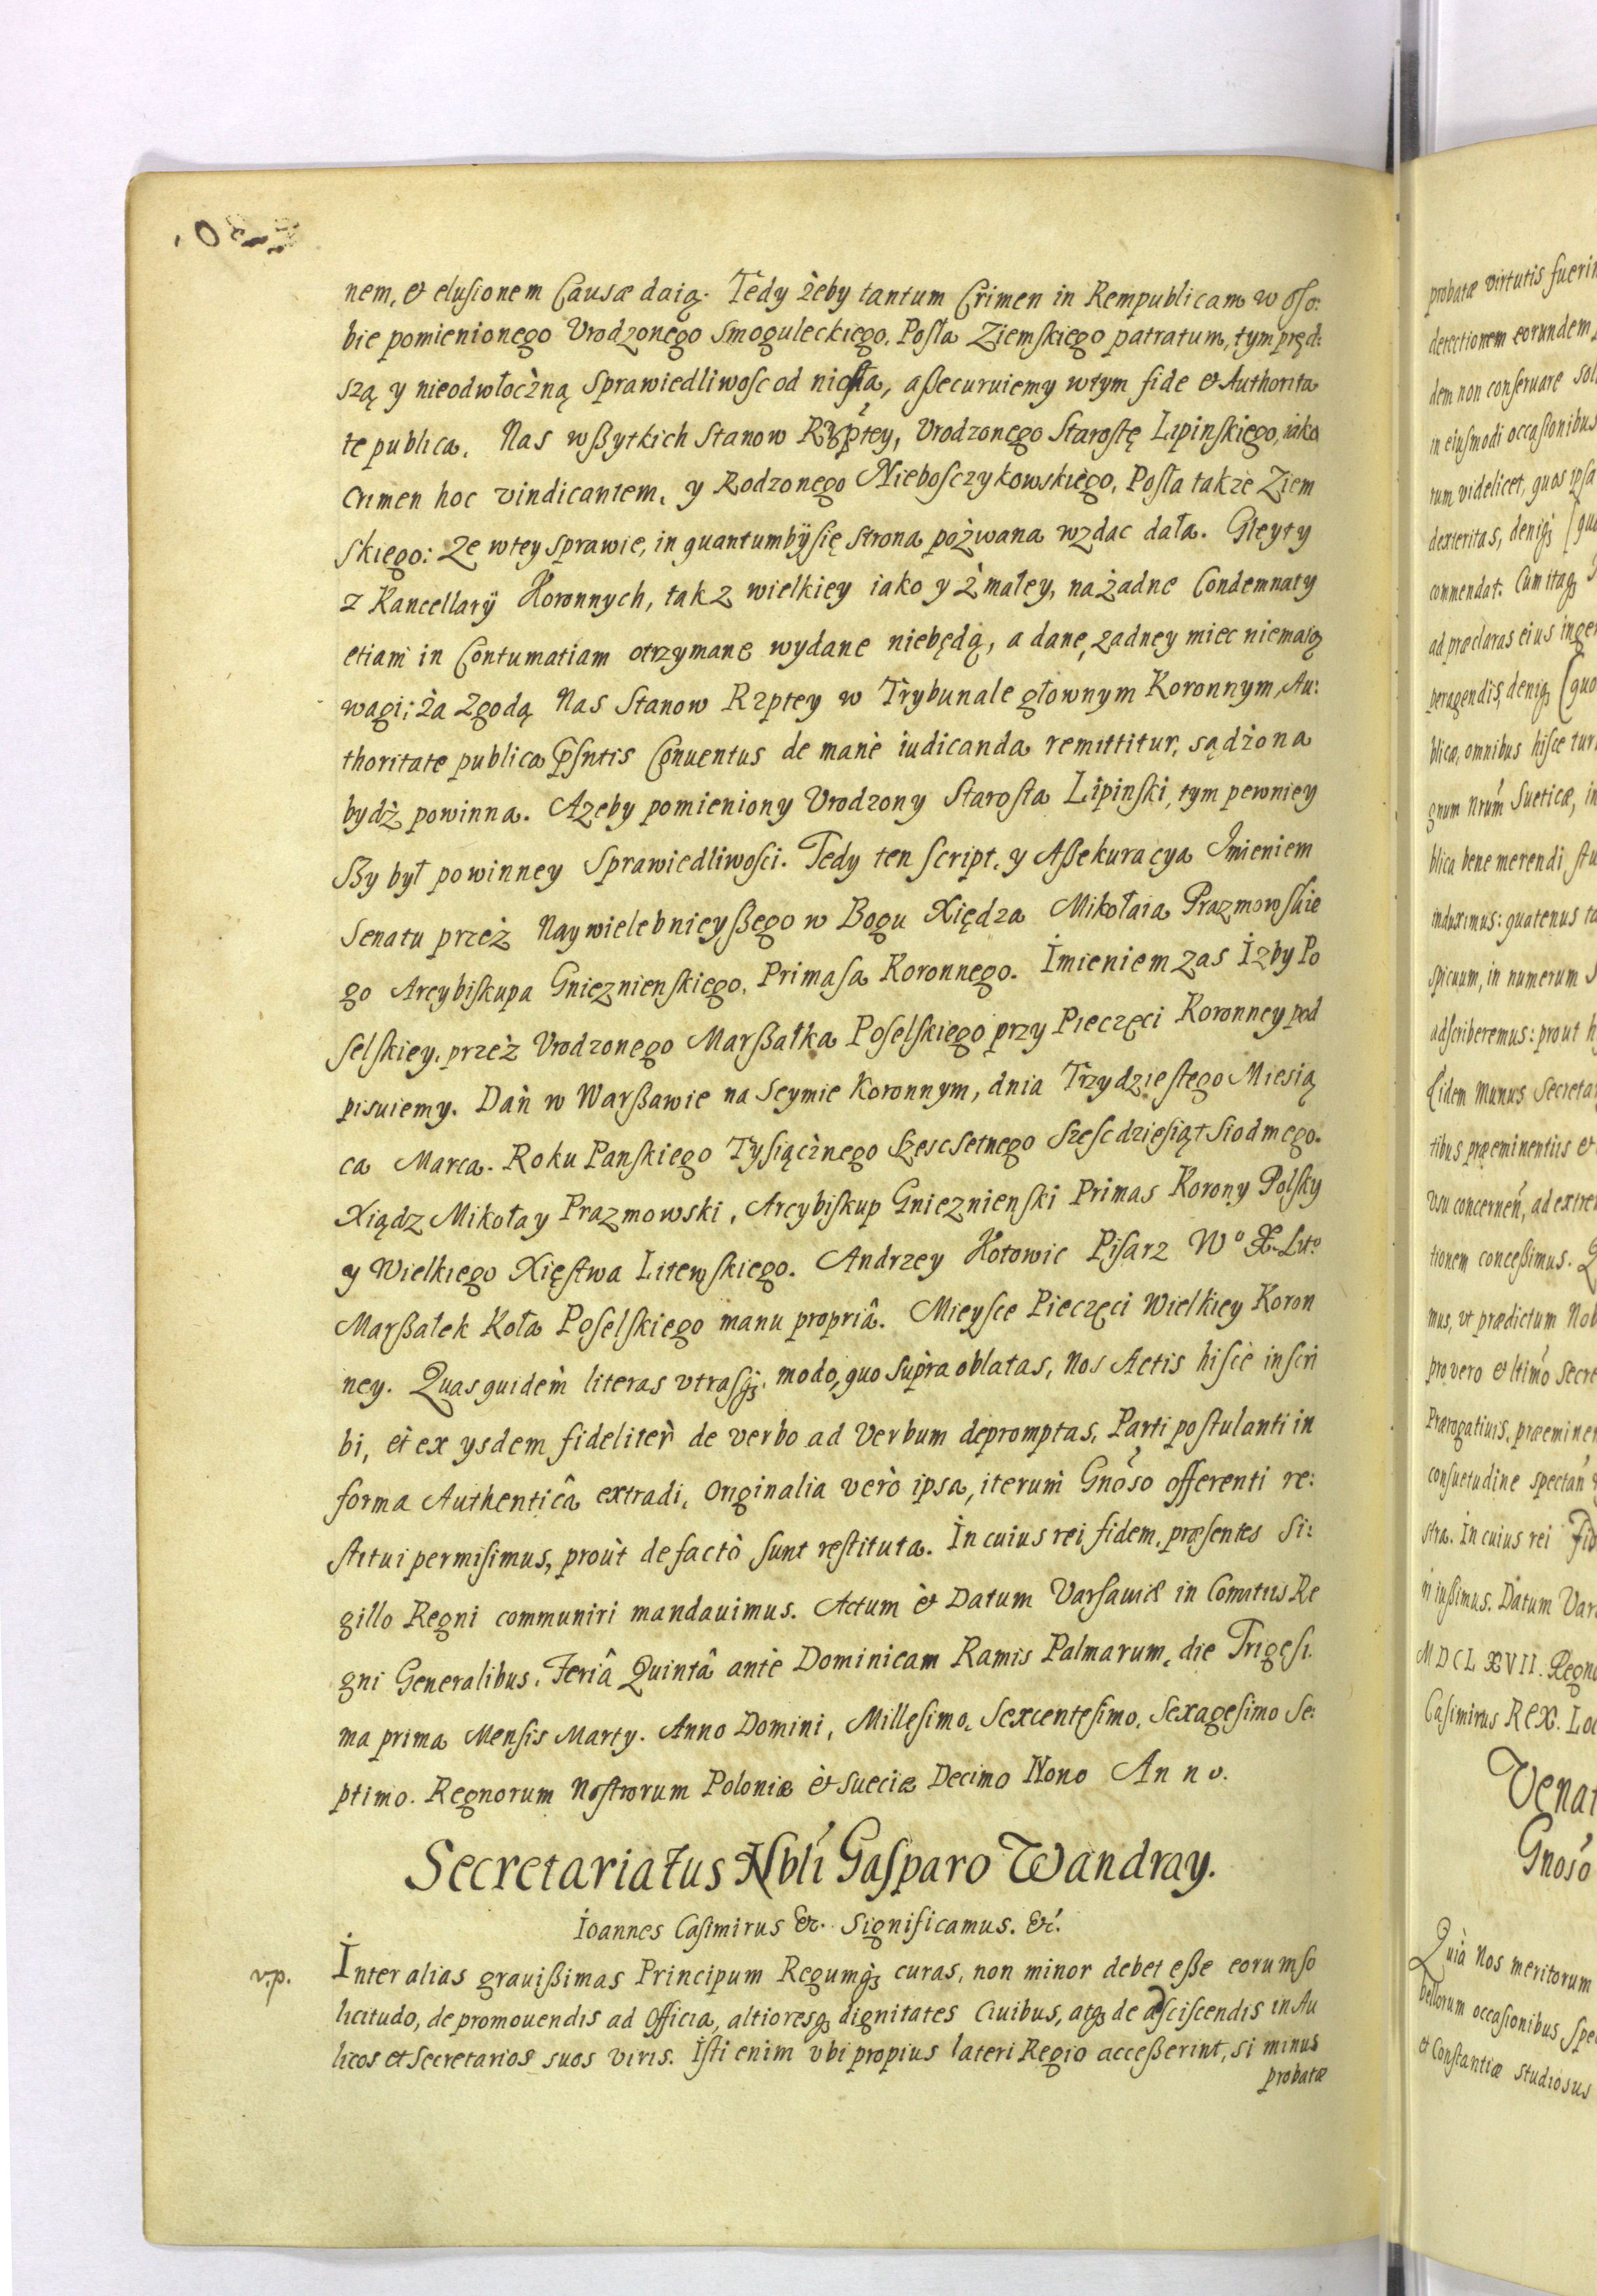 nem, et elusionem Causæ daią. Tedy żeby tantum Crimen in Rempublicam w oso:
bie pomienionego Vrodzonego Smoguleckiego, Posła Ziemskiego patratum, tym pręd:
szą y nieodwłoczną sprawiedliwosc odniosła, aßecuruiemy wtym fide et Authorita
te publica. Nas wßytkich Stanow Rzptey, Vrodzonego Starostę Lipinskiego, iako
crimen hoc vindicantem, y Rodzonego Niebosczykowskiego, Posła takze Ziem
skiego: Ze wtey sprawie, in quantumbysię strona pozwana wzdac dała. Gleyty
z Kancellarÿ Koronnych, tak z wielkiey iako y z małey, na żadne Condemnaty
etiam in Contumatiam otrzymane wydane niebędą, a dane, zadney miec niemaią
wagi; za zgodą Nas Stanow Rzptey w Trybunale głownym Koronnym, Au:
thoritate publica psntis Conuentus de mane iudicanda remittitur, sądzona
bydź powinna. Azeby pomieniony Vrodzony Starosta Lipinski, tym pewniey
ßy był powinney Sprawiedliwosci. Tedy ten script, y Aßekuracya Imieniem
Senatu przez Naywielebnieyßego w Bogu Xiędza Mikołaia Prazmowskie
go Arcybiskupa Gnieznienskiego, Primasa Koronnego. Imieniem zas Izby Po
selskiey, przez Vrodzonego Marßałka Poselskiego przy Pieczęci Koronney pod
pisuiemy. Dan w Warßawie na Seymie Koronnym, dnia Trzydziestego Miesią
ca Marca. Roku Panskiego Tysiącznego Szescsetnego Szescdziesiąt Siodmego.
Xiądz Mikołay Prazmowski, Arcybiskup Gnieznienski Primas Korony Polsky
y Wielkiego Xięstwa Litewskiego. Andrzey Kotowic Pisarz Wº X. Litº
Marßałek Koła Poselskiego manu propriâ. Mieysce Pieczęci Wielkiey Koron
ney. Quas quidem literas vtrasq; modo, quo supra oblatas, Nos Actis hisce inscri
bi, et ex ysdem fideliter de verbo ad Verbum depromptas, Parti postulanti in
forma Authenticâ extradi, Originalia verò ipsa, iterum Gnoso offerenti re:
stitui permisimus, prout defactò sunt restituta. In cuius rei fidem, præsentes Si:
gillo Regni communiri mandauimus. Actum et Datum Varsauiæ in Comitiis Re
gni Generalibus, Feriâ Quintâ ante Dominicam Ramis Palmarum, die Trigesi
ma prima Mensis Marty. Anno Domini, Millesimo, Sexcentesimo, Sexagesimo Se:
ptimo. Regnorum Nostrorum Poloniæ et Sueciæ Decimo Nono Anno.
Secretariatus Nbli Gasparo Wandray.
Ioannes Casimirus &c. Significamus. &c.
v.p.
Inter alias grauißimas Principum Regumq; curas, non minor debet eße eorum so
licitudo, de promouendis ad Officia, altioresq; dignitates Ciuibus, atq; de asciscendis in Au
licos et Secretarios suos viris. Isti enim vbi propius lateri Regio acceßerint, si minus
probatæ
probatæ virtutis fuerin
detectionem eorundem
dem non conseruare sol
in eiusmodi occasionibus
rum videlicet, quos ipsa
dexteritas, deniq; (quo
commendat. Cum itaq;
ad præclaras eius inge
peragendis, deniq; (quo
blica, omnibus hisce tur
gnum nrum Sueticæ, in
blica bene merendi stu
induximus: quatenus ta
spicuum, in numerum S
adscriberemus: prout h
Eidem Munus Secretar
tibus præeminentiis et
vsu concernen, ad extre
tionem conceßimus.
mus, vt prædictum Nob
pro vero et ltimo Secre
Prærogatiuis, præeminen
consuetudine spectan
stra. In cuius rei Fid
ri iußimus. Datum Var
MDCLXVII. Regno
Casimirus REX. Loc
Venat
Gnoso
Quia Nos meritorum
bellorum occasionibus spe
et Constantiæ studiosus